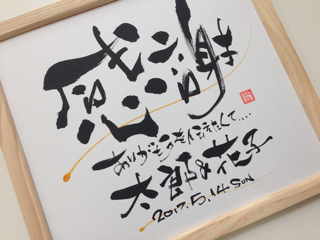 感謝
ありがとうを伝えたくて....
太郎&花子
2017.5.14 SUN